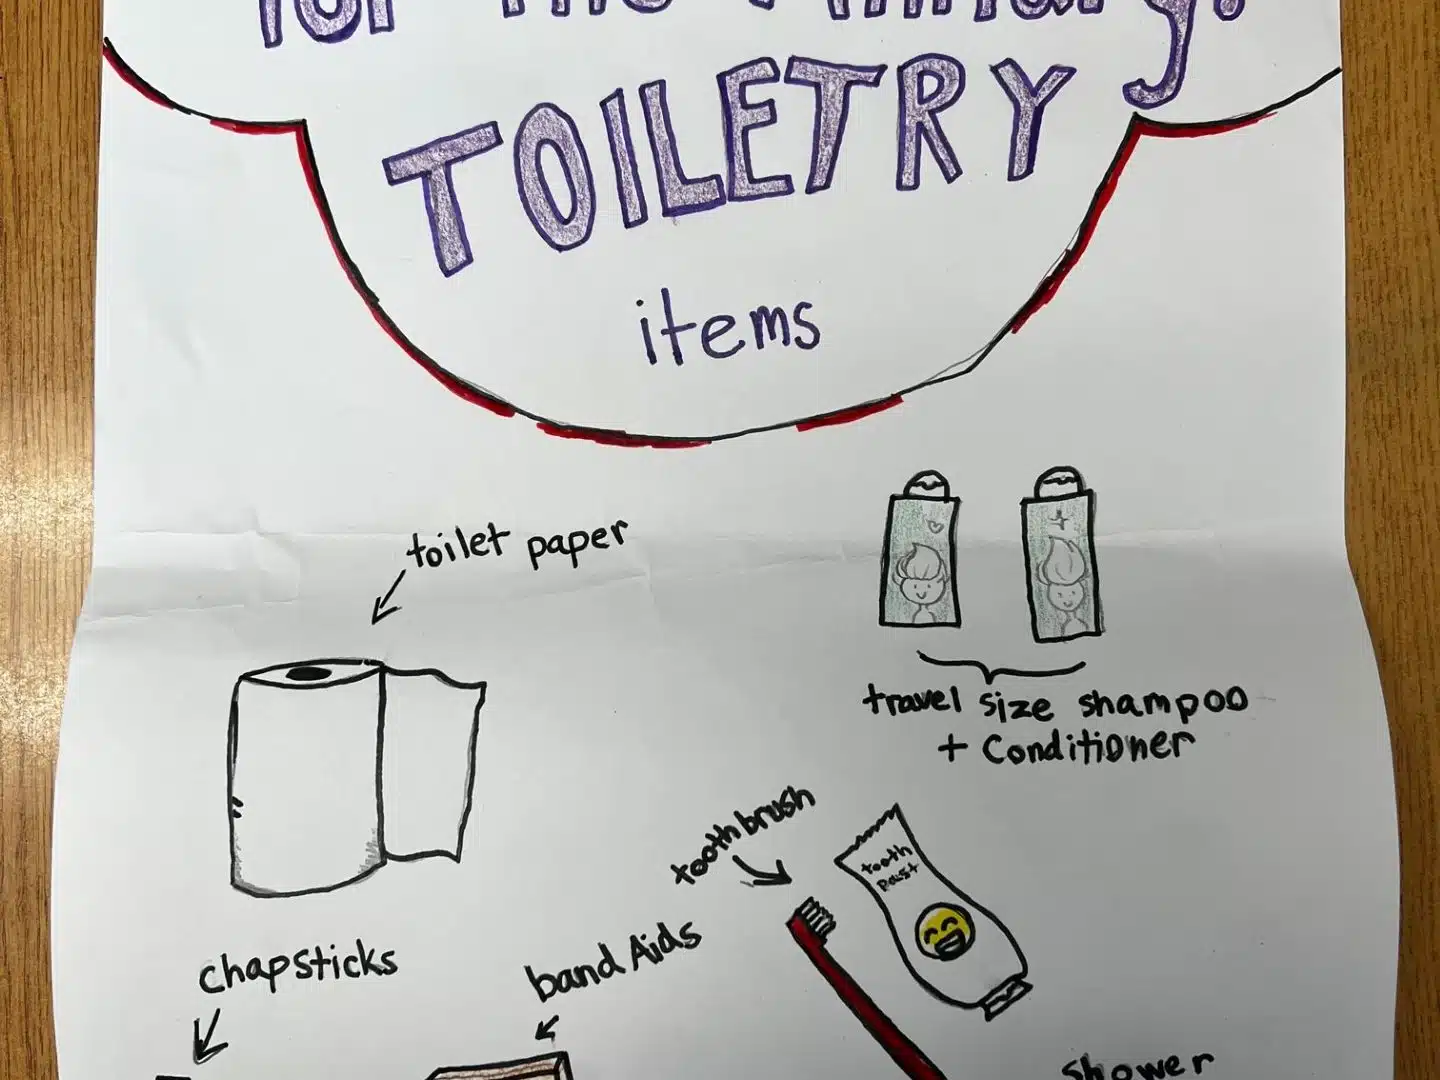 for the Military!
TOILETRY
items
toilet paper
travel size shampoo
+ Conditioner
toothbrush
tooth
past
chapsticks
band Aids
shower